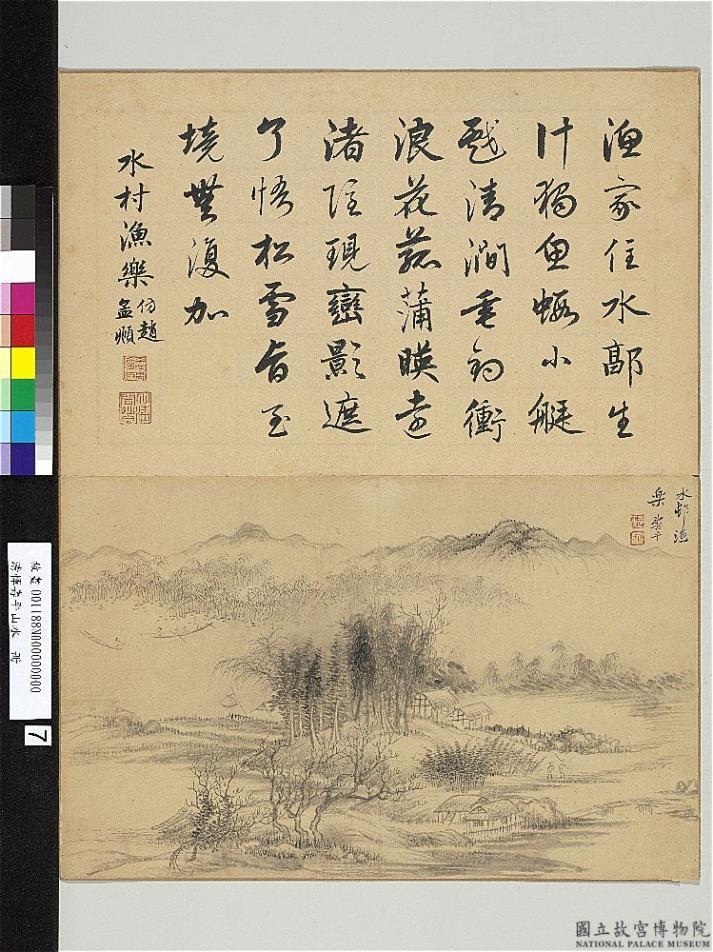 漁家住水鄉生
計獨魚蝦小艇
戲清澗垂釣衝
浪花菰蒲暎遠
渚隱現巒影遮
了悟松雪旨至
境無復加
水村漁樂
仿趙
孟頫
水邨漁
樂 壽平
故畫 001188N000000000
清惲壽平山水 冊
7
國立故宮博物院
NATIONAL PALACE MUSEUM